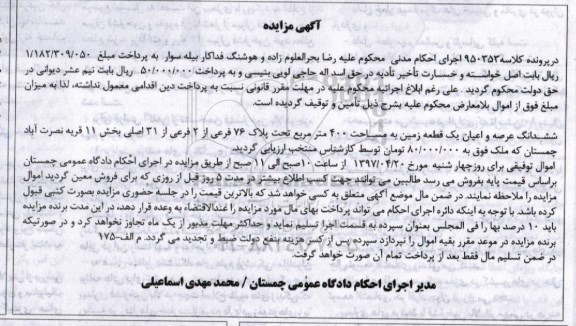 آگهی مزایده
درپرونده کلاسه ۹۵۰۳۵۳ اجرای احکام مدنی محکوم علیه رضا بحرالعلوم زاده و هوشنگ فداکار بیله سوار به پرداخت مبلغ ۱/۱۸۲/۳۰۹/۰۵۰
ریال بابت اصل خواسته و خسارت تأخیر تأدیه در حق اسد اله حاجی لویی بنیسی و به پرداخت ۵۰/۰۰۰/۰۰۰ ریال بابت نیم عشر دیوانی در
حق دولت محکوم گردید. علی رغم ابلاغ اجرائیه محکوم علیه در مهلت مقرر قانونی نسبت به پرداخت دین اقدامی معمول نداشته، لذا به میزان
مبلغ فوق از اموال بلامعارض محکوم علیه بشرح ذیل تأمین و توقیف گردیده است.
ششدانگ عرصه و اعیان یک قطعه زمین به مساحت ۴۰۰ متر مربع تحت پلاک ۷۶ فرعی از ۲ فرعی از ۳۱ اصلی بخش ۱۱ قریه نصرت آباد
چمستان که ملک فوق به ۸۰/۰۰۰/۰۰۰ تومان توسط کارشناس منتخب ارزیابی گردید.
اموال توقیفی برای روزچهار شنبه مورخ ۱۳۹۷/۰۴/۲۰ از ساعت ۱۰صبح الی ۱۱ صبح از طریق مزایده در اجرای احکام دادگاه عمومی چمستان
براساس قیمت پایه بفروش می رسد طالبین می توانند جهت کسب اطلاع بیشتر در مدت ۵ روز قبل از روزی که برای فروش معین گردید اموال
مزایده را ملاحظه نمایند. در ضمن مال موضع آگهی متعلق به کسی خواهد شد که بالاترین قیمت را در جلسه حضوری مزایده بصورت کتبی قبول
کرده باشد. با توجه به اینکه دائره اجرای احکام می تواند پرداخت بهای مال مورد مزایده را عندالاقتضاء به وعده قرار دهد، در این مدت برنده مزایده
باید ۱۰ درصد بها را فی المجلس بعنوان سپرده به قسمت اجرا تسلیم نماید و حداکثر مهلت مذبور از یک ماه تجاوز نخواهد کرد و در صورتیکه
برنده مزایده در موعد مقرر بقیه اموال را نپردازد سپرده پس از کسر هزینه بنفع دولت ضبط و تجدید می گردد. م الف-۱۷۵
در ضمن تسلیم مال فقط بعد از پرداخت تمام آن صورت خواهد گرفت.
مدیر اجرای احکام دادگاه عمومی چمستان / محمد مهدی اسماعیلی